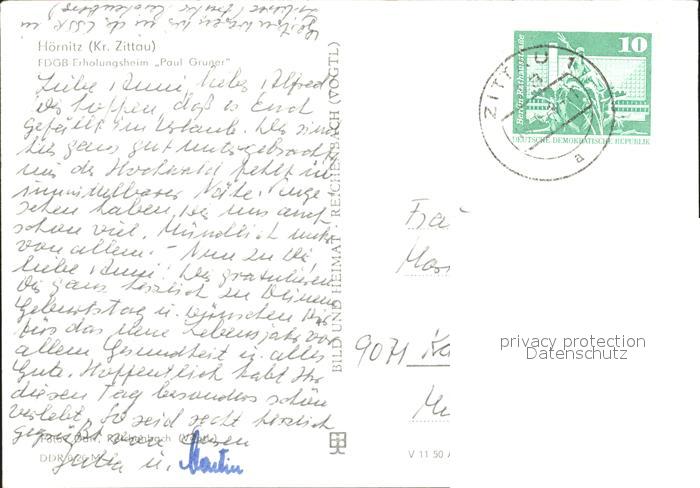 Hörnitz (Kr. Zittau)
FDGB Erholungsheim „Paul Gruner"
Liebe Rumi, lieber Alfred
Wir hoffen, daß es Euch
gefällt im Urlaub. Wir sind
hier ganz gut untergebracht
nur der Hochwald fehlt in
unmittelbarer Nähe. Ange
sehen haben wir uns auch
schon viel. Mündlich mehr
von allem. – Nun zu Dir
liebe Rumi! Wir gratulieren
Dir ganz herzlich zu Deinem
Geburtstag u. wünschen Dir
fürs das neue Lebensjahr vor
allem Gesundheit u. alles
Gute. Hoffentlich habt Ihr
diesen Tag besonders schön
verlebt. So seid recht herzlich
gegrüßt von Euren
Jutta u. Martin
BILD UND HEIMAT · REICHENBACH (VOGTL)
V 11 50
10
Berlin, Rathausstraße
DEUTSCHE DEMOKRATISCHE REPUBLIK
ZITTAU 1
a
9071
privacy protection
Datenschutz